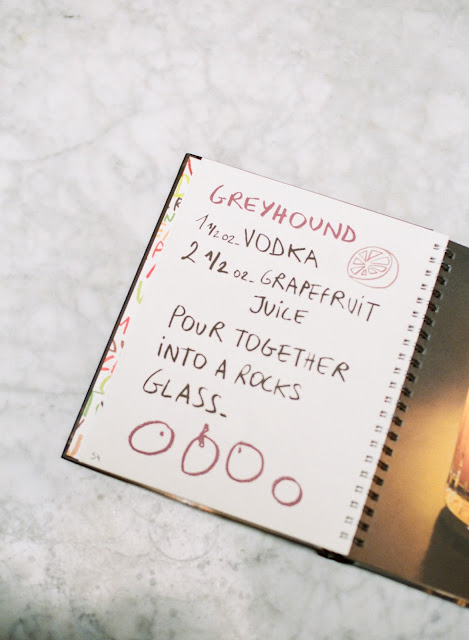 GREYHOUND
1 1/2 oz_ VODKA
2 1/2 oz_ GRAPEFRUIT
JUICE
POUR TOGETHER
iNTO A ROCKS
GLASS_
54